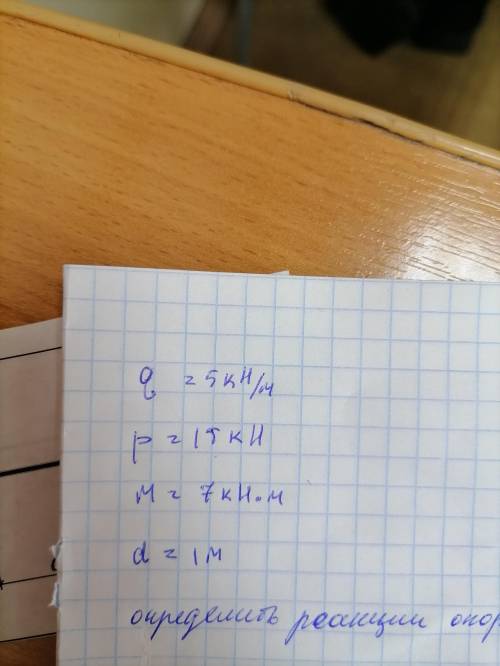 q = 5 кН/м
p = 15 кН
M = 7 кН·м
d = 1 м
определить реакции опор